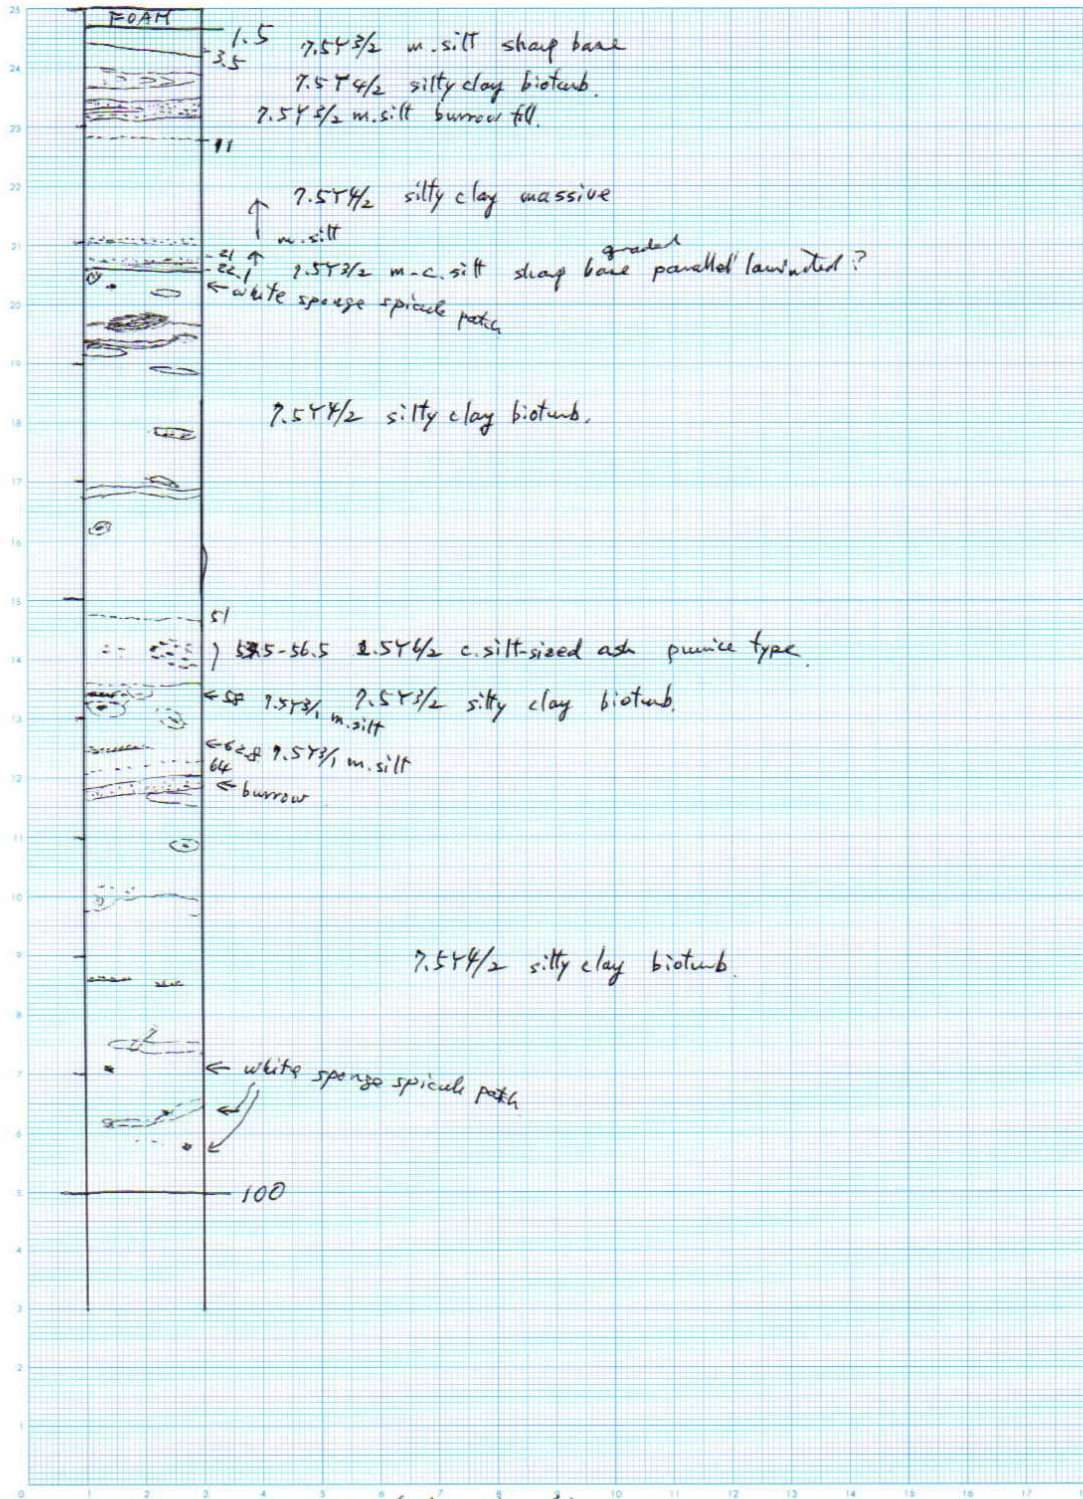 FOAM
1.5
3.5 7.5Y3/2 m.silt sharp base
7.5Y4/2 silty clay bioturb.
7.5Y3/2 m.silt burrow fill.
11
7.5Y4/2 silty clay massive
m.silt
21
graded
22.1 7.5Y3/2 m-c.silt sharp base parallel laminated?
←white sponge spicule patch
7.5Y4/2 silty clay bioturb.
51
56.5 c.silt-sized ash pumice type.
←58 7.5Y3/1 m.silt 7.5Y3/2 silty clay bioturb.
←62.8 7.5Y3/1 m.silt
64
←burrow
7.5Y4/2 silty clay bioturb.
← white sponge spicule patch
100
25
24
23
22
21
20
19
18
17
16
15
14
13
12
11
10
9
8
7
6
5
4
3
2
1
0 1 2 3 4 5 6 7 8 9 10 11 12 13 14 15 16 17